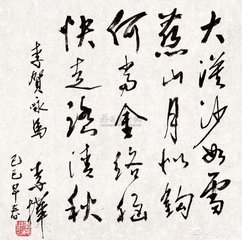 大漠沙如雪
燕山月似钩
何当金络脑
快走踏清秋
李贺咏马
己巳早春